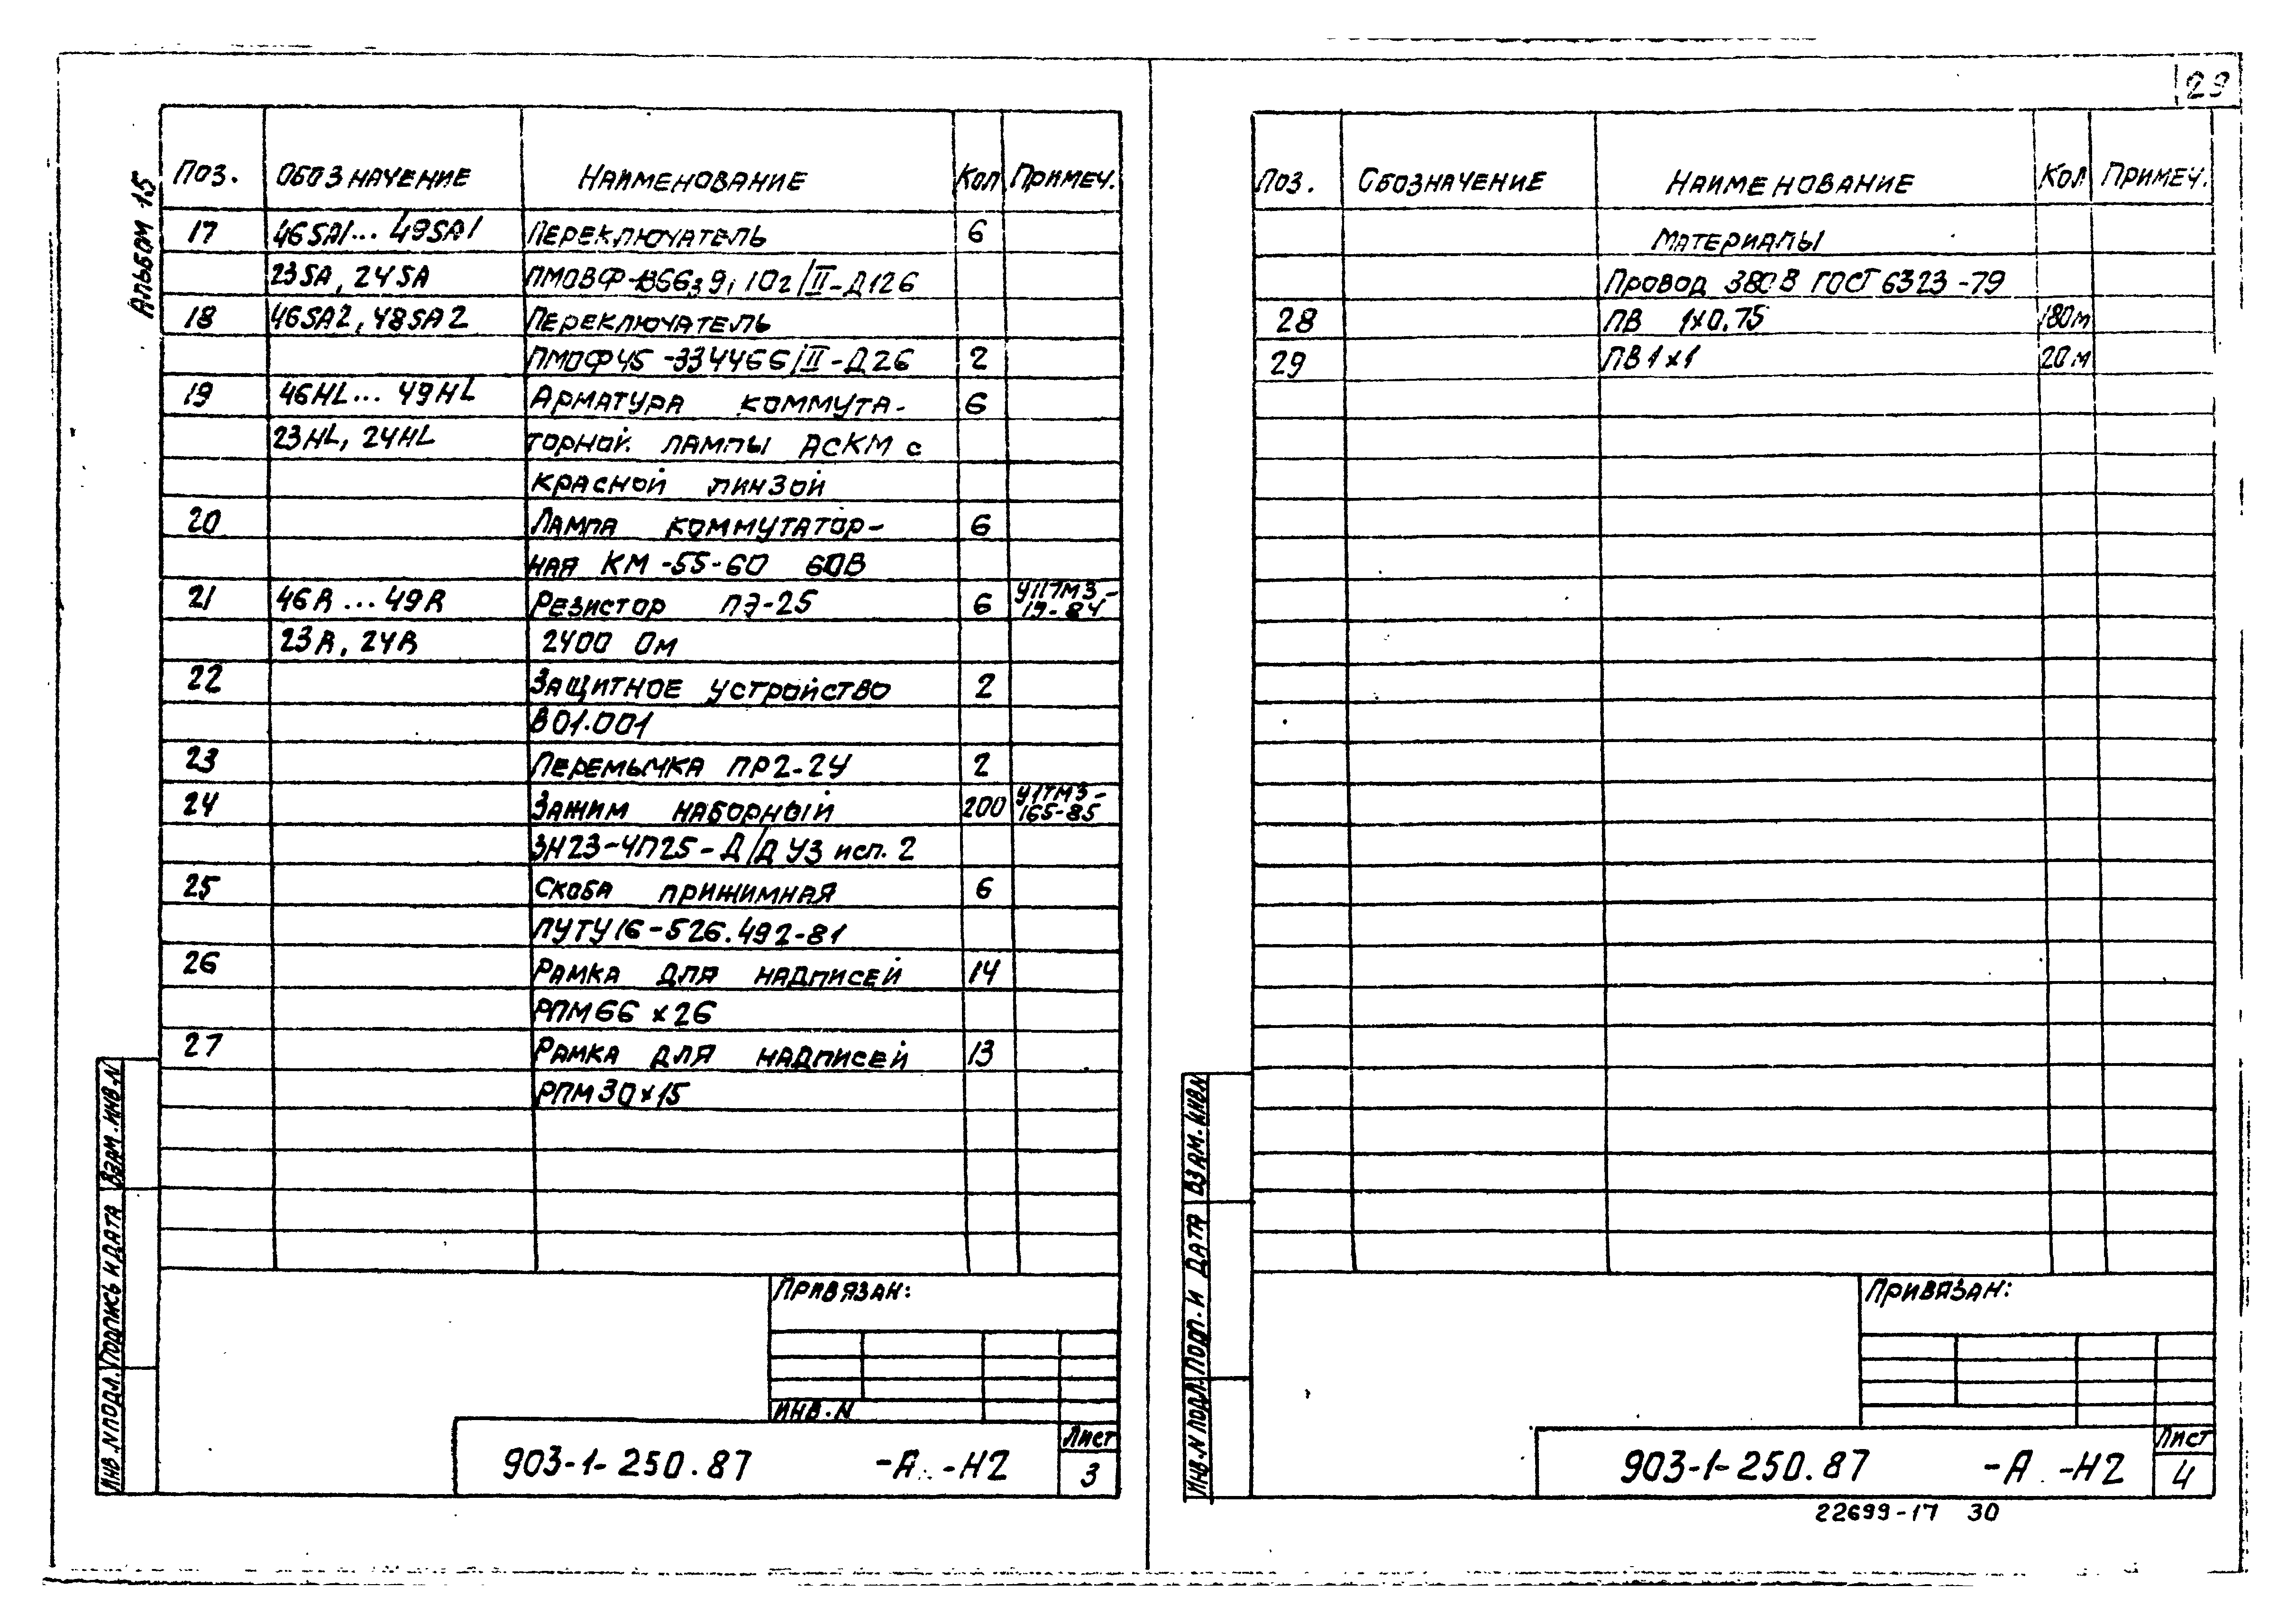 29
Альбом 15
Поз. Обозначение Наименование Кол Примеч.
17 46SA1... 49SA1 Переключатель 6
23SA, 24SA
18 46SA2, 48SA2 Переключатель
ПМОФ45-334466/II-Д26 2
19 46HL... 49HL Арматура коммута- 6
23HL, 24HL торной лампы АСКМ с
красной линзой
20 Лампа коммутатор- 6
ная КМ-55-60 60В
21 46R...49R Резистор ПЭ-25 6 УПТМ3-
19-84
23R, 24R 2400 Ом
22 Защитное устройство 2
В01.001
23 Перемычка ПР2-2У 2
24 Зажим наборный 200 УПТМ3-
165-85
ЗН23-4П25-Д/Д У3 исп. 2
25 Скоба прижимная 6
ПУТУ16-526.492-81
26 Рамка для надписей 14
РПМ66х26
27 Рамка для надписей 13
РПМ30х15
Привязан:
ИНВ.N
903-1-250.87 -А -Н2
Лист
3
Инв.N подл. Подпись и дата Взам.инв.N
Поз. Обозначение Наименование Кол Примеч.
Материалы
Провод 380В ГОСТ 6323-79
28 ПВ 1х0.75 180м
29 ПВ1х1 20м
Привязан:
903-1-250.87 -А -Н2
Лист
4
Инв.N подл. Подп. и дата Взам.инв.N
22699-17 30